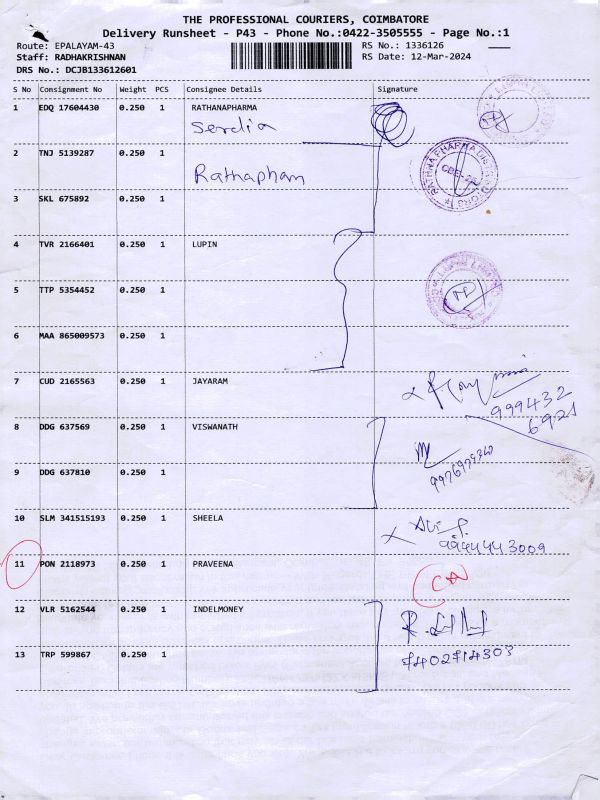 THE PROFESSIONAL COURIERS, COIMBATORE
Delivery Runsheet - P43 - Phone No.:0422-3505555 - Page No.:1
Route: EPALAYAM-43 RS No.: 1336126
Staff: RADHAKRISHNAN RS Date: 12-Mar-2024
DRS No.: DCJB133612601
S No Consignment No Weight PCS Consignee Details Signature
1 EDQ 17604430 0.250 1 RATHANAPHARMA
Serdia
2 TNJ 5139287 0.250 1
Rathapham
3 SKL 675892 0.250 1
4 TVR 2166401 0.250 1 LUPIN
5 TTP 5354452 0.250 1
6 MAA 865009573 0.250 1
7 CUD 2165563 0.250 1 JAYARAM
999432
6921
8 DDG 637569 0.250 1 VISWANATH
9 DDG 637810 0.250 1
10 SLM 341515193 0.250 1 SHEELA
9944443009
11 PON 2118973 0.250 1 PRAVEENA
12 VLR 5162544 0.250 1 INDELMONEY
7402714303
13 TRP 599867 0.250 1